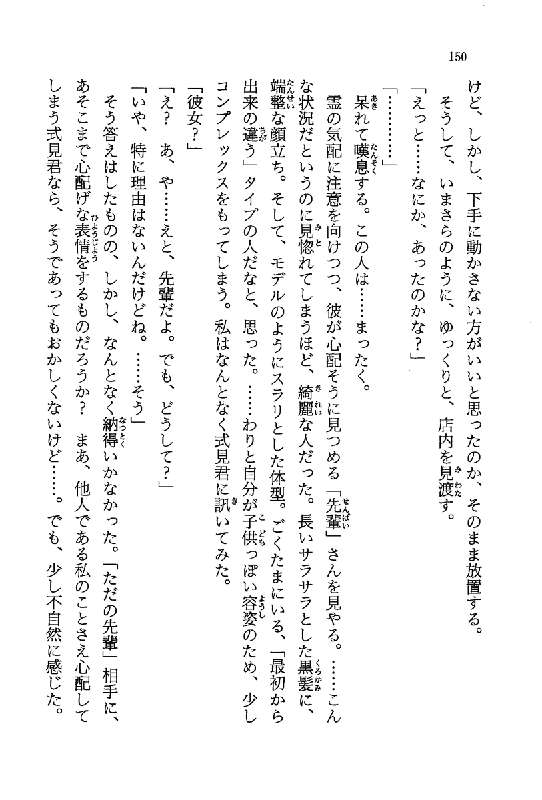 150
けど、しかし、下手に動かさない方がいいと思ったのか、そのまま放置する。
そうして、いまさらのように、ゆっくりと、店内を見渡す。
「えっと……なにか、あったのかな？」
「…………」
呆れて嘆息する。この人は……まったく。
霊の気配に注意を向けつつ、彼が心配そうに見つめる「先輩」さんを見やる。……こん
な状況だというのに見惚れてしまうほど、綺麗な人だった。長いサラサラとした黒髪に、
端整な顔立ち。そして、モデルのようにスラリとした体型。ごくたまにいる、「最初から
出来の違う」タイプの人だなと、思った。……わりと自分が子供っぽい容姿のため、少し
コンプレックスをもってしまう。私はなんとなく式見君に訊いてみた。
「彼女？」
「え？　あ、や……えと、先輩だよ。でも、どうして？」
「いや、特に理由はないんだけどね。……そう」
そう答えはしたものの、しかし、なんとなく納得いかなかった。「ただの先輩」相手に、
あそこまで心配げな表情をするものだろうか？　まあ、他人である私のことさえ心配して
しまう式見君なら、そうであってもおかしくないけど……。でも、少し不自然に感じた。